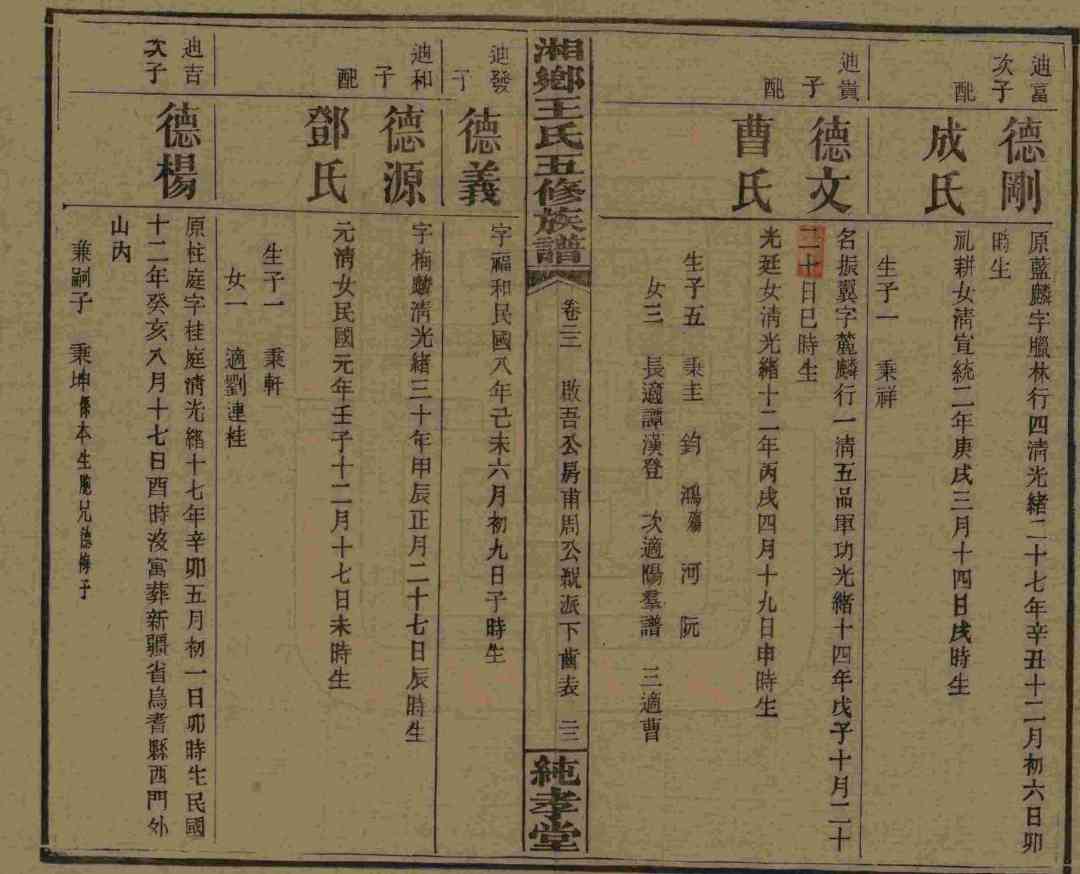 迪富
次子
德剛
原藍麟字臘林行四清光緒二十七年辛丑十二月初六日卯
時生
配
成氏
礼耕女清宣統二年庚戌三月十四日戌時生
生子一 秉祥
迪貴
子
德文
名振翼字麓麟行一清五品軍功光緒十四年戊子十月二十
二十日巳時生
配
曹氏
光廷女清光緒十二年丙戌四月十九日申時生
生子五 秉圭 鈞 鴻殤 河 阮
女三 長適譚漢登 次適陽羣譜 三適曹
湘鄉王氏五修族譜
卷三二 啟吾公房甫周公 派下齒表 三三
純孝堂
迪發
子
德義
字福和民國八年己未六月初九日子時生
迪和
子
德源
字楠 清光緒三十年甲辰正月二十七日辰時生
配
鄧氏
元清女民國元年壬子十二月十七日未時生
生子一 秉軒
女一 適劉連桂
迪吉
次子
德楊
原柱庭字桂庭清光緒十七年辛卯五月初一日卯時生民國
十二年癸亥八月十七日酉時沒寓葬新疆省焉耆縣西門外
山内
兼嗣子 秉坤係本生胞兄德傳子